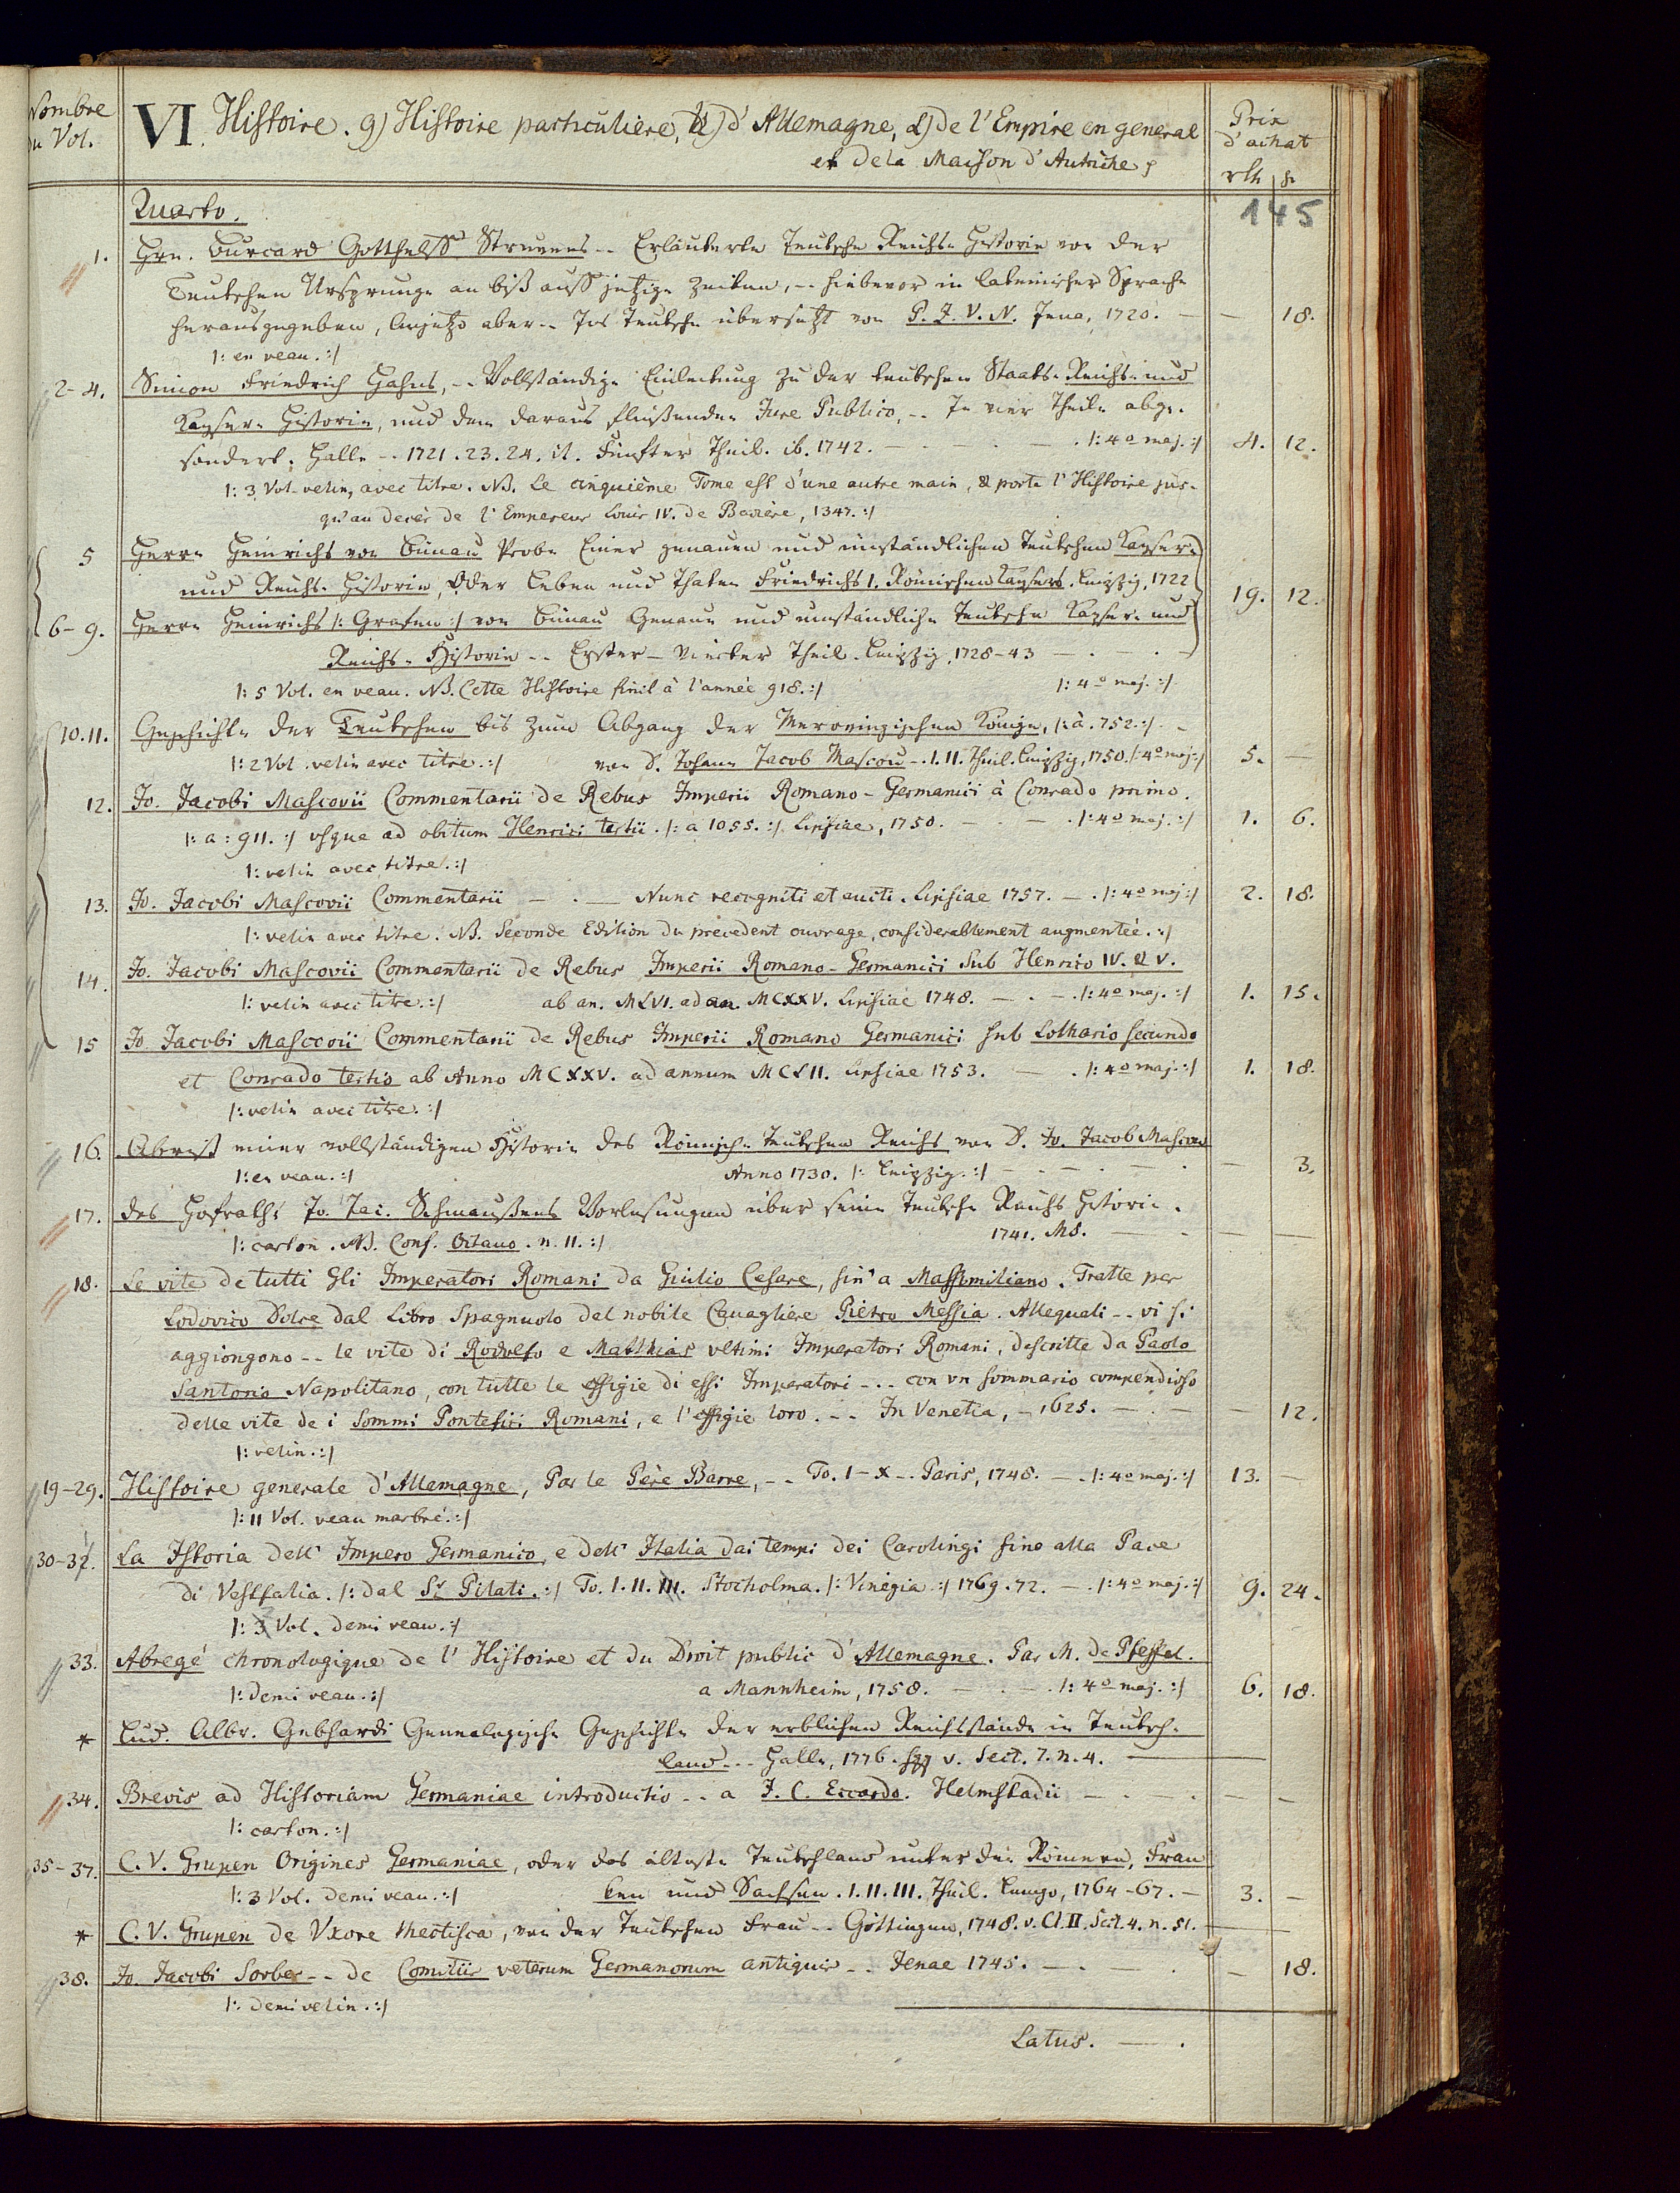 Nombre
du Vol.
VI. Histoire. g) Histoire particuliere, d'Allemagne, α) de l'Empire en general
et de la Maison d'Autriche;
Prix
d'achat
rth gr
145
Quarto.
1. Hrn. Burcard Gotthelff Struvens -- Erläuterte Teutsche Reichs-Historie von der
Teutschen Ursprunge an biß auff jetzige Zeiten, -- hiebevor in lateinischer Sprache
herausgegeben, Anjetzo aber -- Ins Teutsche übersetzt von P. J. V. N. Jena, 1720. — — 18.
|: en veau. :|
2-4. Simon Friedrich Hahns, -- Vollständige Einleitung zu der teutschen Staats- Reichs- und
Kayser- Historie, und dem daraus fließenden Jure Publico, -- In vier Theile abge-
sondert. Halle -- 1721. 23. 24. it. Fünfter Theil. ib. 1742. — . — . — . |: 4º maj. :| 4. 12.
|: 3 Vol. velin, avec titre. NB. Le cinquième Tome est d'une autre main, & porte l'Histoire jus-
qu'au decès de l'Empereur Louis IV. de Baviere, 1347. :|
5 Herrn Heinrichs von Bünau Probe Einer genauen und umständlichen Teutschen Kayser-
und Reichs- Historie, Oder Leben und Thaten Friedrichs I. Römischen Kaysers. Leipzig, 1722
19. 12.
6-9. Herrn Heinrichs |: Grafen :| von Bünau Genaue und umständliche Teutsche Kayser- und
Reichs- Historie -- Erster - Vierter Theil. Leipzig, 1728-43 — . — . —
|: 5 Vol. en veau. NB. Cette Histoire finit à l'année 918. :| |: 4º maj. :|
10. 11. Geschichte der Teutschen bis zum Abgang der Merovingischen Könige, |: à. 752. :| -
|: 2 Vol. velin avec titre. :| von D. Johann Jacob Mascou -. I. II. Theil. Leipzig, 1750. |: 4º maj :| 5. —
12. Jo. Jacobi Mascovii Commentarii de Rebus Imperii Romano-Germanici à Conrado primo.
|: a: 911. :| usque ad obitum Henrici tertii. |: a 1055. :| Lipsiae, 1750. — . — . |: 4º maj. :| 1. 6.
|: velin avec titre. :|
13. Jo. Jacobi Mascovii Commentarii — . — Nunc recogniti et aucti. Lipsiae 1757. — . |: 4º maj :| 2. 18.
|: velin avec titre. NB. Seconde Edition du precedent ouvrage, considerablement augmentée. :|
14. Jo. Jacobi Mascovii Commentarii de Rebus Imperii Romano-Germanici sub Henrico IV. & V.
|: velin avec titre. :| ab an. MLVI. ad an. MCXXV. Lipsiae 1748. — . — . |: 4º maj. :| 1. 15.
15 Jo. Jacobi Mascovii Commentarii de Rebus Imperii Romano Germanici sub Lothario secundo
et Conrado tertio ab Anno MCXXV. ad annum MCLII. Lipsiae 1753. — . |: 4º maj. :| 1. 18.
|: velin avec titre. :|
16. Abriß einer vollständigen Historie des Römisch- Teutschen Reichs von D. Jo. Jacob Mascou
|: en veau. :| Anno 1730. |: Leipzig. :| — . — . — . — 3.
17. Des Hofraths Jo. Jac. Schmaußens Vorlesungen über seine Teutsche Reichs Historie.
|: carton. NB. Conf. Octavo. n. 11. :| 1741. MS. — . — —
18. Le vite de tutti gli Imperatori Romani da Giulio Cesare, sin' a Massimiliano. Tratte per
Lodovico Dolce dal Libro Spagnuolo del nobile Cavagliere Pietro Messia. Allequali -- vi si
aggiongono -- le vite di Rodolfo e Matthias ultimi Imperatori Romani, descritte da Paolo
Santorio Napolitano, con tutte le effigie di essi Imperatori --- con un sommario compendioso
delle vite de i Sommi Pontefici Romani, e l'effigie loro. -- In Venetia, - 1625. — . — — 12.
|: velin. :|
19-29. Histoire generale d'Allemagne, Par le Père Barre, -- To. I-X -. Paris, 1748. — . |: 4º maj. :| 13. —
|: 11 Vol. veau marbré. :|
30-32. La Istoria dell' Impero Germanico, e dell' Italia dai tempi dei Carolingi fino alla Pace
di Vestfalia. |: dal Sr. Pilati. :| To. I. II. III. Stocholma. |: Vinegia :| 1769. 72. — . |: 4º maj. :| 9. 24.
|: 3 Vol. demi veau. :|
33. Abregé chronologique de l'Histoire et du Droit public d'Allemagne. Par M. de Pfeffel.
|: demi veau. :| a Mannheim, 1758. — . — . |: 4º maj. :| 6. 18.
* Lud. Albr. Gebhardi Genealogische Geschichte der erblichen Reichsstände in Teutsch-
land -- Halle, 1776. sqq v. Sect. 7. n. 4. —
34. Brevis ad Historiam Germaniae introductio -- a J. C. Eccardo. Helmstadii — . — . — —
|: carton. :|
35-37. C. V. Grupen Origines Germaniae, oder das älteste Teutschland unter den Römern, Fran
|: 3 Vol. demi veau. :| ken und Sachsen. I. II. III. Theil. Lemgo, 1764-67. — 3. —
* C. V. Grupen de Vxore theotisca, von der Teutschen Frau -- Göttingen, 1748. v. Cl. II. Sect. 4. n. 51. —
38. Jo. Jacobi Sorber -- de Comitiis veterum Germanorum antiquis -- Jenae 1745. — . — . — 18.
|: demi velin. :|
Latus. — .